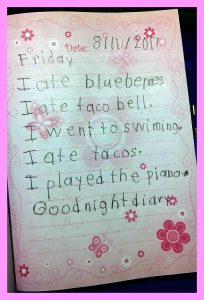 Date:
Friday
I ate blueberres
I ate taco bell.
I went to swiming.
I ate tacos.
I played the piano.
Goodnight diary.